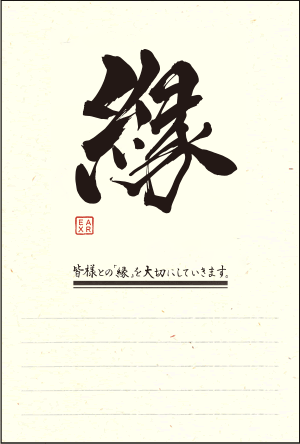 縁
EA
XR
皆様との「縁」を大切にしていきます。